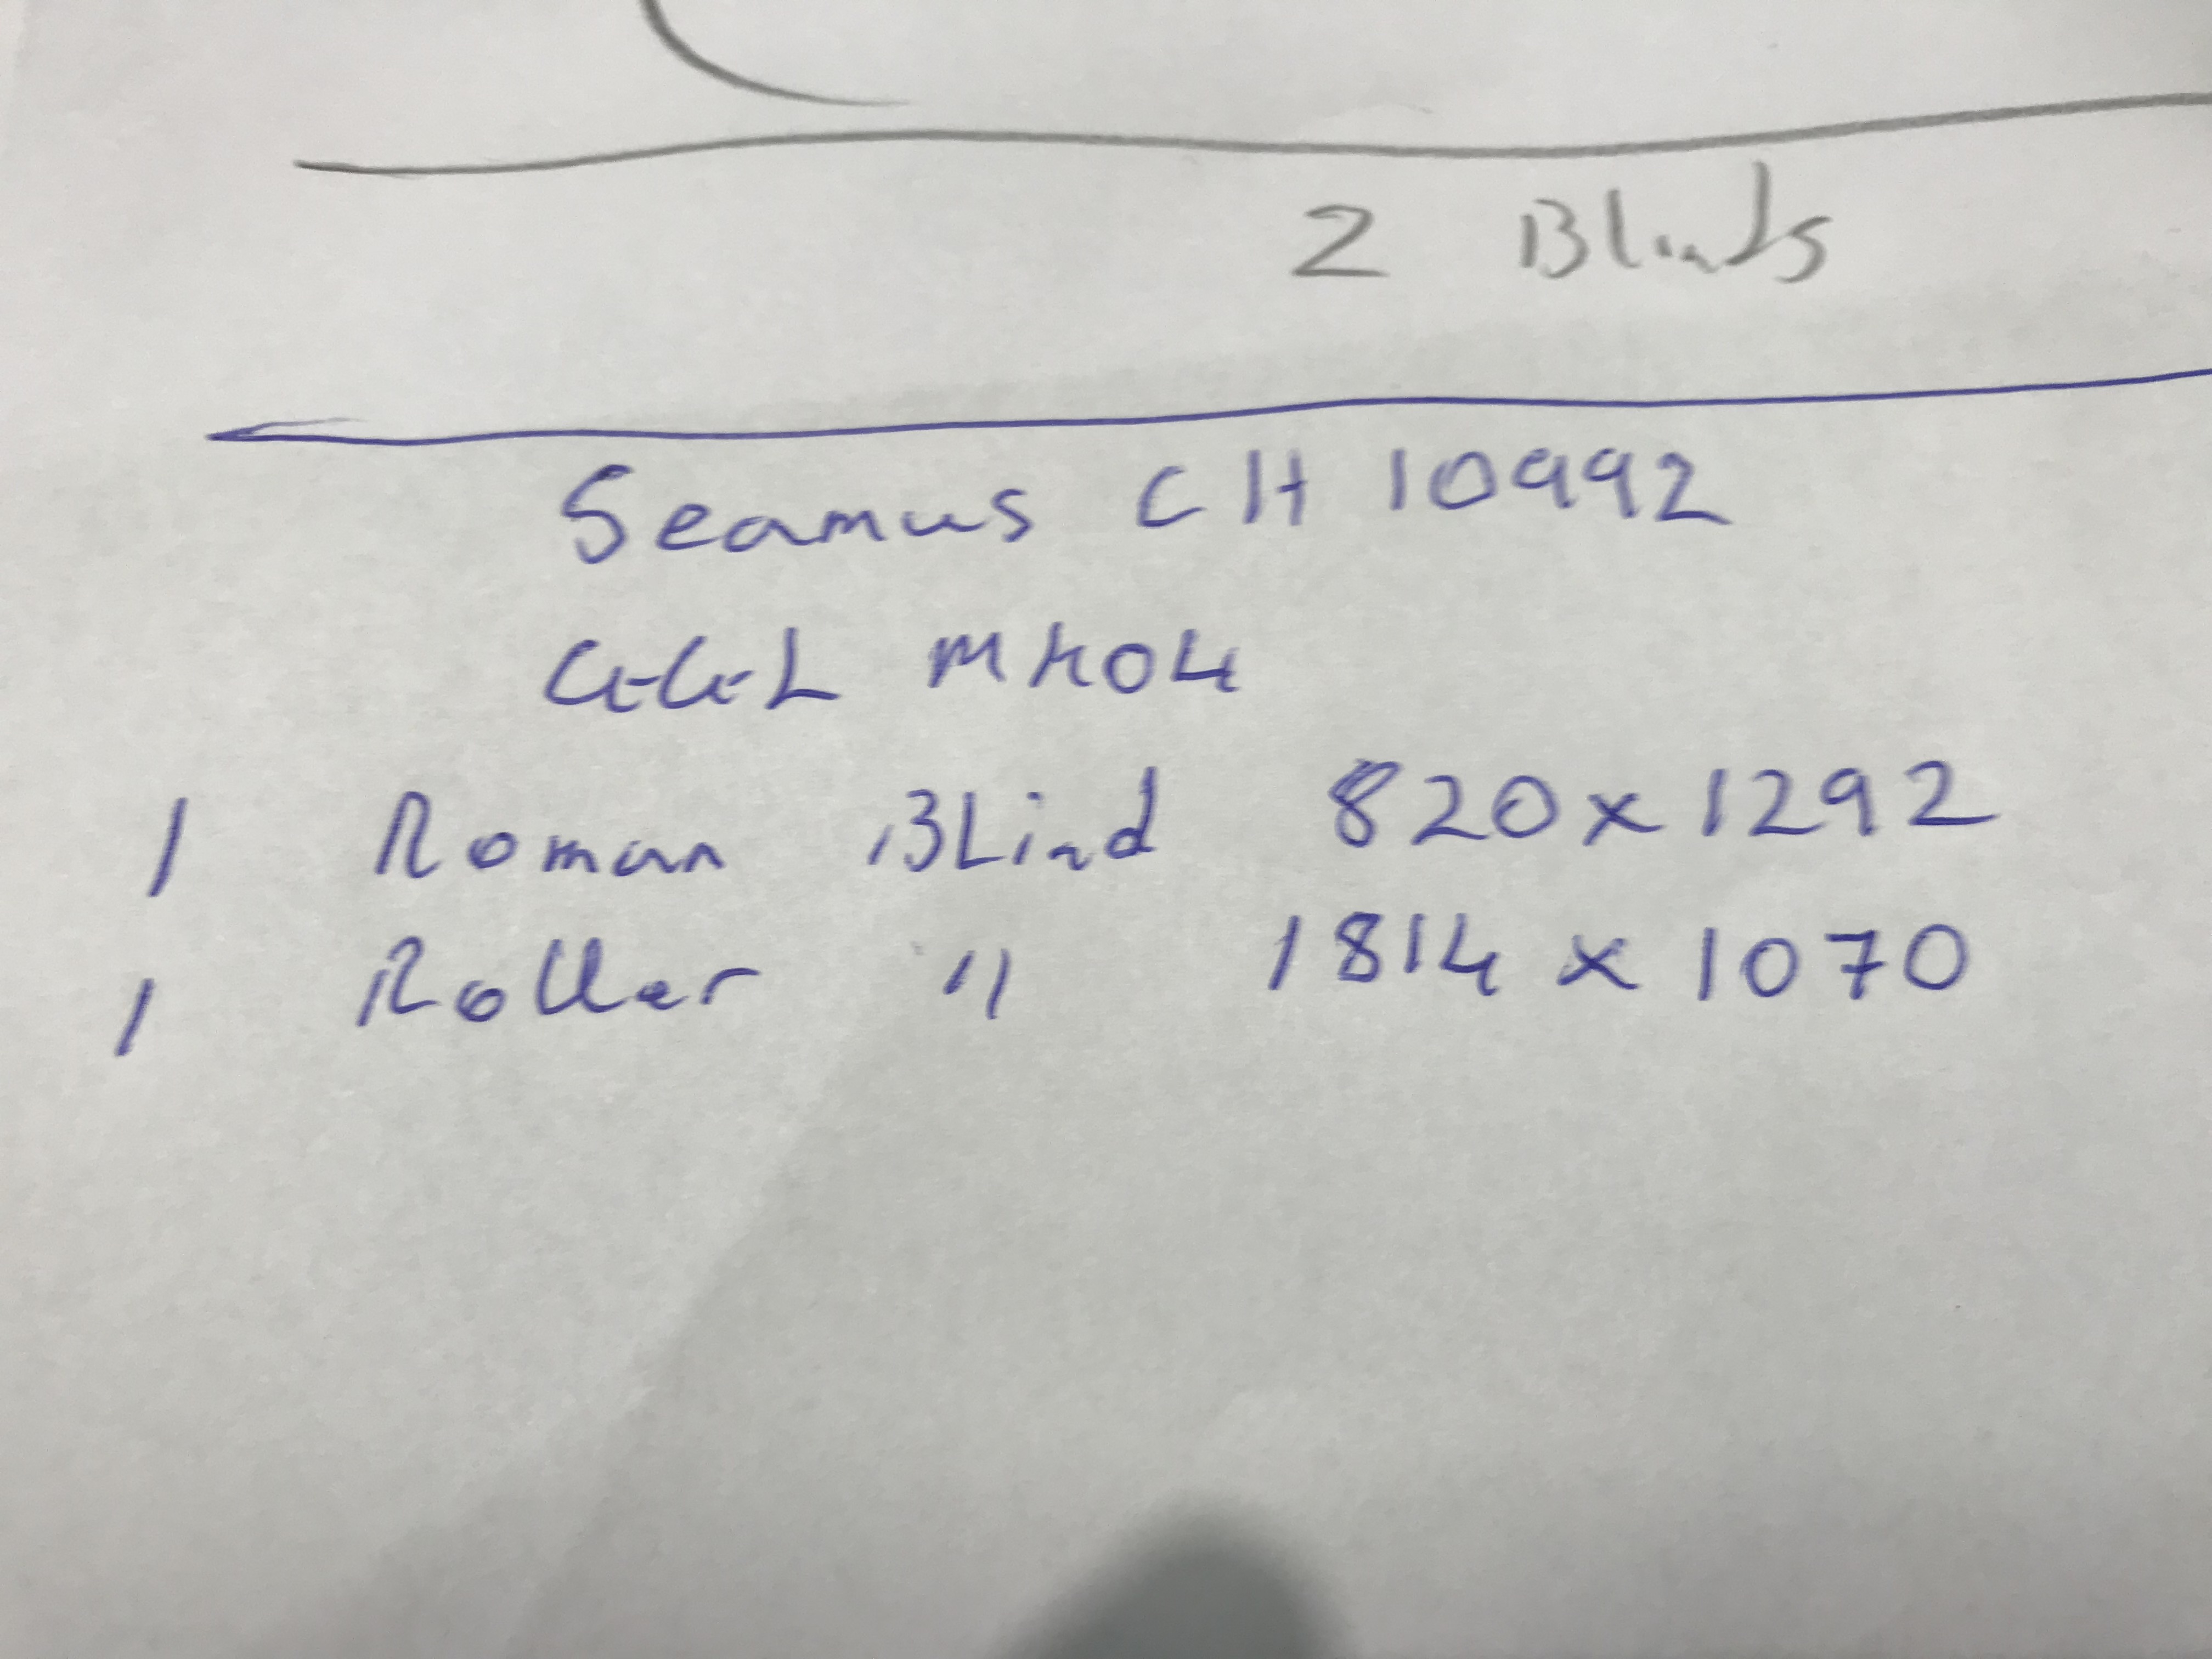 2 Blinds
Seamus CH 10992
GGL MK04
1 Roman BLind 820 x 1292
1 Roller " 1814 x 1070